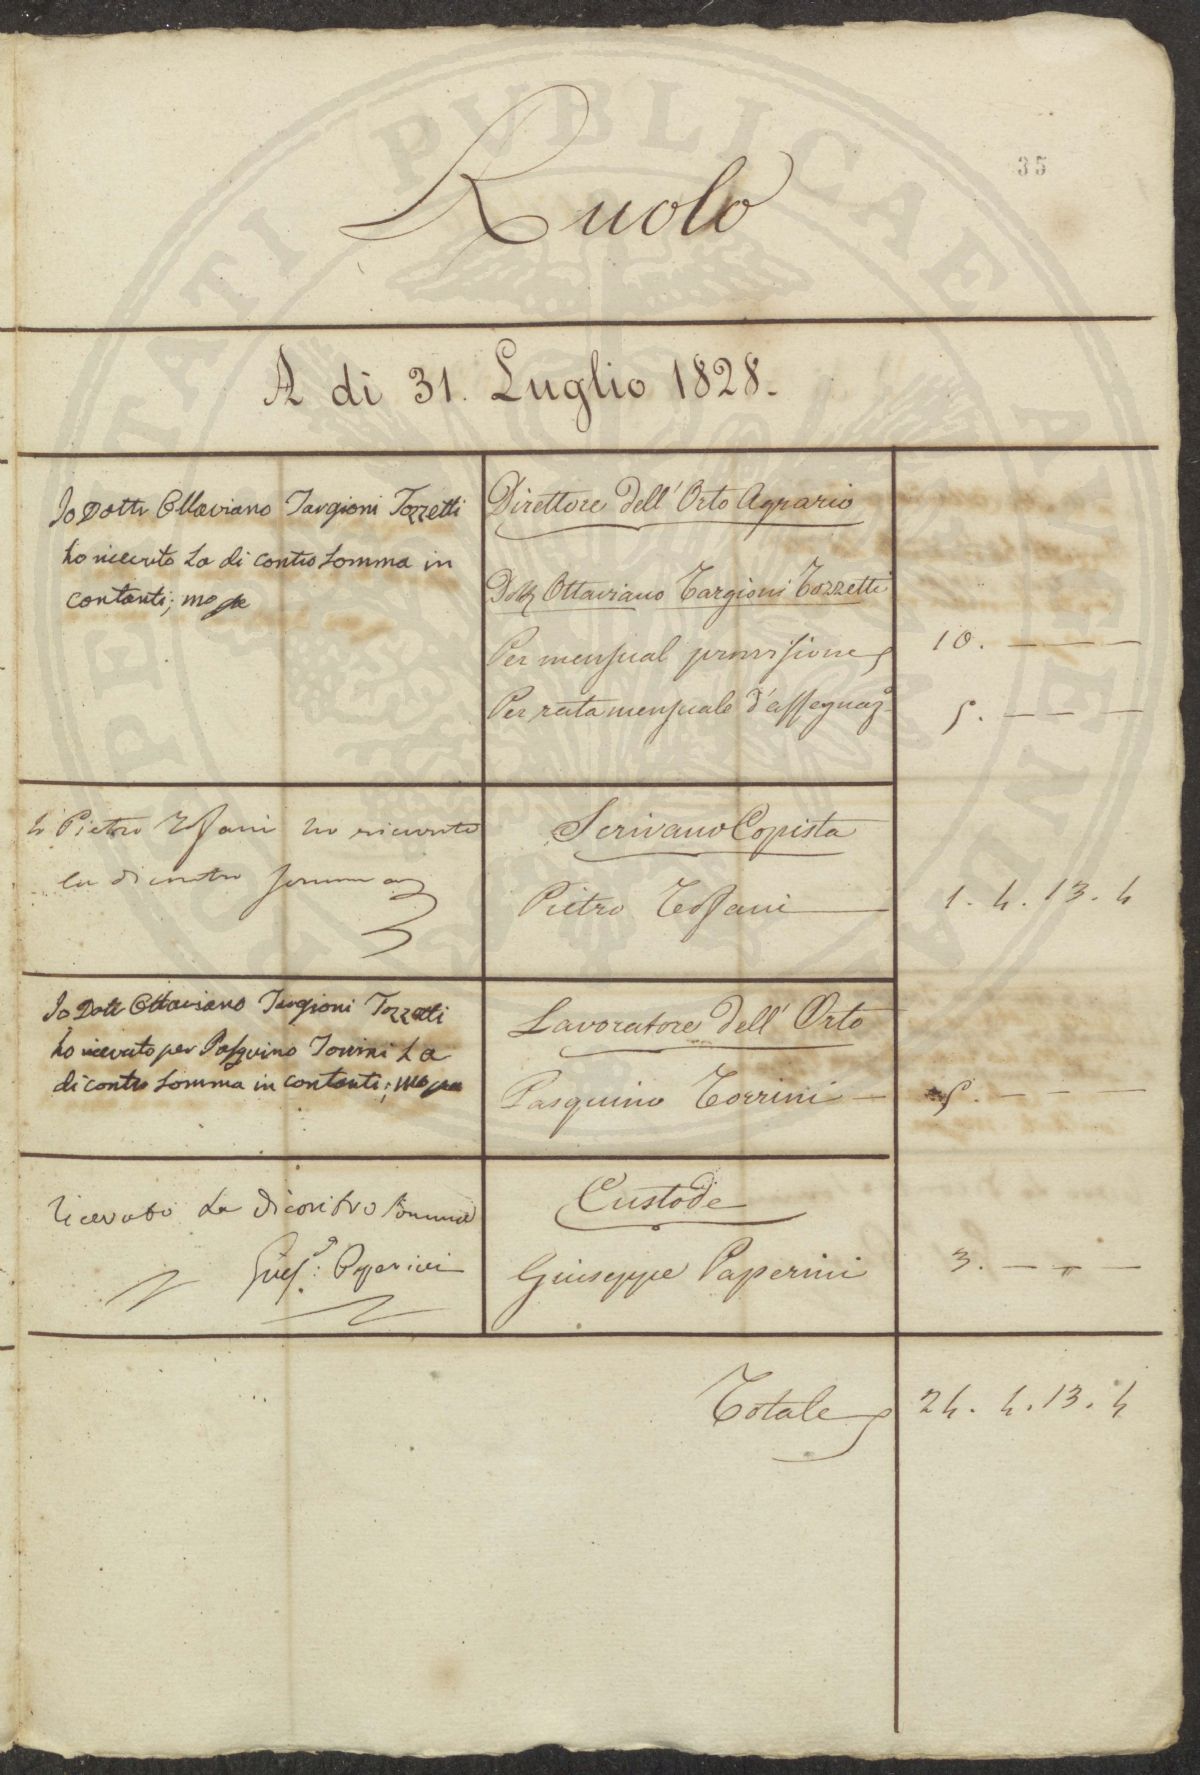 35
Ruolo
A di 31. Luglio 1828.
Io Dottr Ottaviano Targioni Tozzetti
ho ricevuto La di contro Somma in
contanti;
Direttore dell'Orto Agrario
Dott Ottaviano Targioni Tozzetti
Per mensual provvisione 10. — — —
Per rata mensuale d'assegnazne 5. — — —
Io Pietro Tofani ho ricevuto
la di contro somma
Scrivano Copista
Pietro Tofani 1. 4. 13. 4
Io Dott Ottaviano Targioni Tozzetti
ho ricevuto per Pasquino Torrini La
di contro Somma in contanti;
Lavoratore dell'Orto
Pasquino Torrini — 5. — — —
Ricevuto La Dicontro Somma
Giuse: Paperini
Custode
Giuseppe Paperini 3. — — —
Totale 24. 4. 13. 4
PUBLICAE